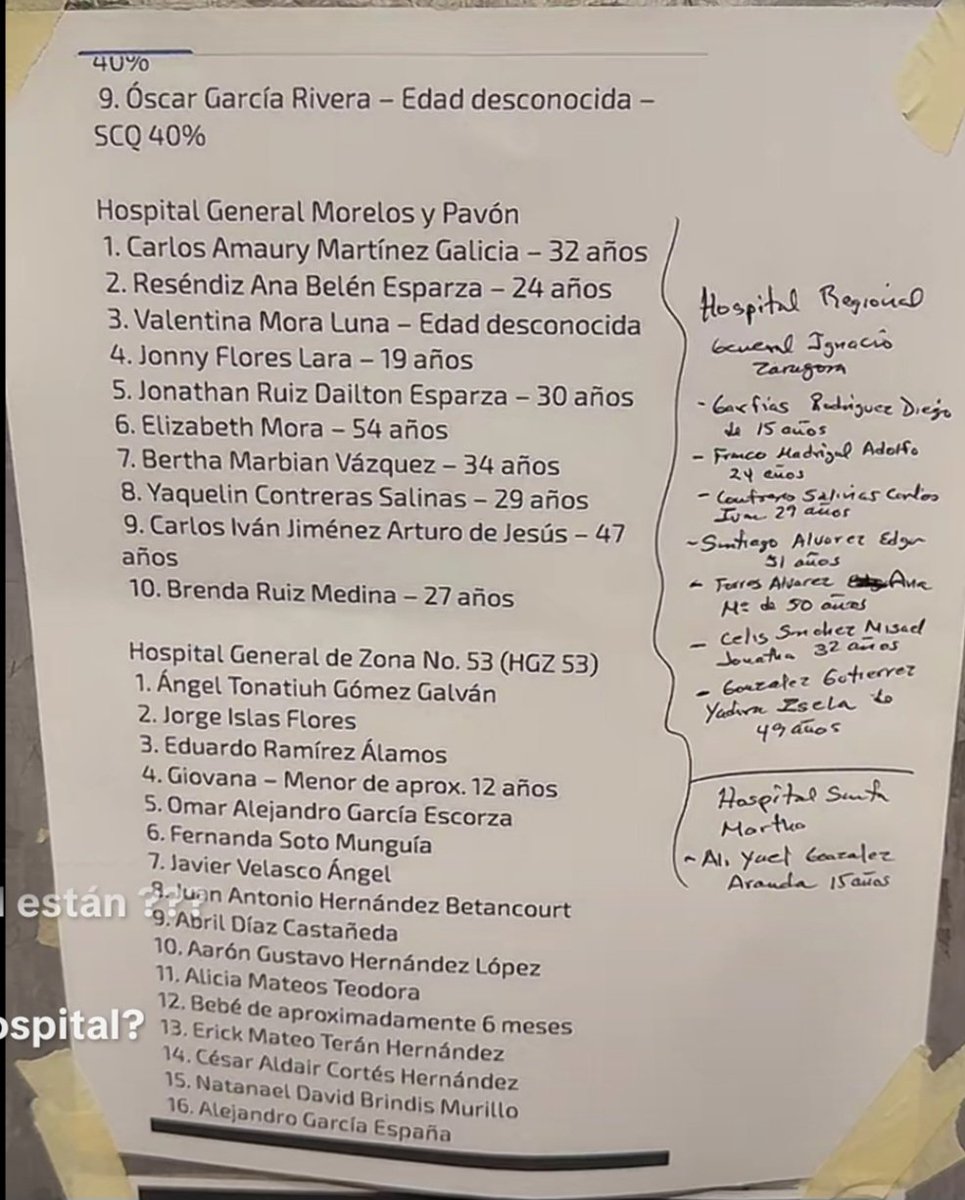 40%
9. Óscar García Rivera – Edad desconocida –
SCQ 40%
Hospital General Morelos y Pavón
1. Carlos Amaury Martínez Galicia – 32 años
2. Reséndiz Ana Belén Esparza – 24 años
3. Valentina Mora Luna – Edad desconocida
4. Jonny Flores Lara – 19 años
5. Jonathan Ruiz Dailton Esparza – 30 años
6. Elizabeth Mora – 54 años
7. Bertha Marbian Vázquez – 34 años
8. Yaquelin Contreras Salinas – 29 años
9. Carlos Iván Jiménez Arturo de Jesús – 47
años
10. Brenda Ruiz Medina – 27 años
Hospital General de Zona No. 53 (HGZ 53)
1. Ángel Tonatiuh Gómez Galván
2. Jorge Islas Flores
3. Eduardo Ramírez Álamos
4. Giovana – Menor de aprox. 12 años
5. Omar Alejandro García Escorza
6. Fernanda Soto Munguía
7. Javier Velasco Ángel
8. Juan Antonio Hernández Betancourt
9. Abril Díaz Castañeda
10. Aarón Gustavo Hernández López
11. Alicia Mateos Teodora
12. Bebé de aproximadamente 6 meses
13. Erick Mateo Terán Hernández
14. César Aldair Cortés Hernández
15. Natanael David Brindis Murillo
16. Alejandro García España
Hospital Regional
General Ignacio
Zaragoza
- Garfias Rodriguez Diego
de 15 años
- Franco Madrigal Adolfo
24 años
- Contreras Salinas Carlos
Ivan 29 años
- Santiago Alvarez Edgar
51 años
- Torres Alvarez Ana
Mª de 50 años
- Celis Sanchez Misael
Jonathan 32 años
- Gonzalez Gutierrez
Yadira Isela de
49 años
Hospital Santa
Martha
- Ali Yael Gonzalez
Aranda 15 años
están ???
ospital?